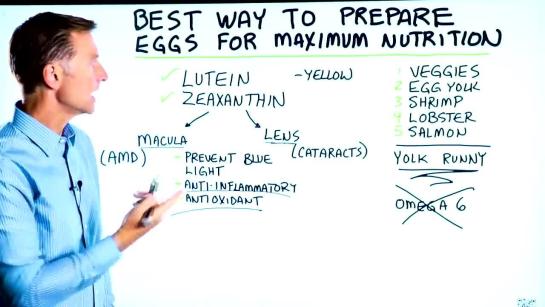 BEST WAY TO PREPARE
EGGS FOR MAXIMUM NUTRITION
✓ LUTEIN - YELLOW
✓ ZEAXANTHIN
MACULA
(AMD)
- PREVENT BLUE
LIGHT
- ANTI-INFLAMMATORY
ANTIOXIDANT
LENS
(CATARACTS)
1 VEGGIES
2 EGG YOLK
3 SHRIMP
4 LOBSTER
5 SALMON
YOLK RUNNY
OMEGA 6